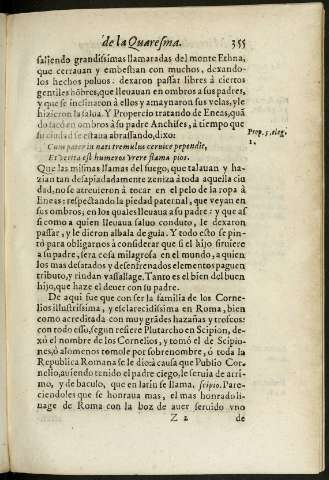 de la Quaresma. 355
saliendo grandissimas llamaradas del monte Ethna,
que cerrauan y embestian con muchos, dexando-
los hechos poluos: dexaron passar libres à ciertos
gentiles hõbres, que lleuauan en ombros a sus padres,
y que se inclinaron à ellos y amaynaron sus velas, y le
hizieron la salua. Y Propercio tratando de Eneas, quã
do sacó en ombros à su padre Anchises, à tiempo que
su ciudad se estaua abrassando, dixo:
Prop. 5. eleg.
1.
Cum pater in nati tremulus ceruice pependit,
Et verita est humeros vrere flama pios.
Que las mismas llamas del fuego, que talauan y ha-
zian tan desapiadadamente zeniza à toda aquella ciu
dad, no se atreuieron à tocar en el pelo de la ropa à
Eneas: respectando la piedad paternal, que veyan en
sus ombros; en los quales lleuaua a su padre: y que assi
como a quien lleuaua saluo conduto, le dexaron
passar, y le dieron albala de guia. Y todo esto se pin-
tó para obligarnos à considerar que si el hijo siruiere
a su padre, sera cosa milagrosa en el mundo, a quien
los mas desatados y desenfrenados elementos paguen
tributo, y rindan vassallage. Tanto es el bien del buen
hijo, que haze el deuer con su padre.
De aqui fue que con ser la familia de los Corne-
lios illustrissima, y esclarecidissima en Roma, bien
como acreditada con muy grãdes hazañas y trofeos:
con todo esso, segun refiere Plutarcho en Scipion, de-
xó el nombre de los Cornelios, y tomó el de Scipio-
nes, ò alomenos tomole por sobrenombre, ò toda la
Republica Romana se le dio: à causa que Publio Cor-
nelio, auiendo tenido el padre ciego, le seruia de arri-
mo, y de baculo, que en latin se llama, scipio. Pare-
ciendoles que se honraua mas, el mas honrado li-
nage de Roma con la boz de auer seruido vno
Z 2 de